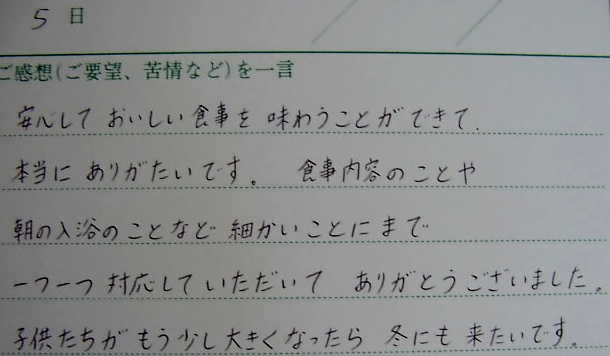 5日
ご感想(ご要望、苦情など)を一言
安心して おいしい食事を 味わうことができて、
本当に ありがたいです。 食事内容のことや
朝の入浴のことなど 細かいことにまで
一つ一つ 対応して いただいて ありがとうございました。
子供たちが もう少し大きくなったら 冬にも 来たいです。